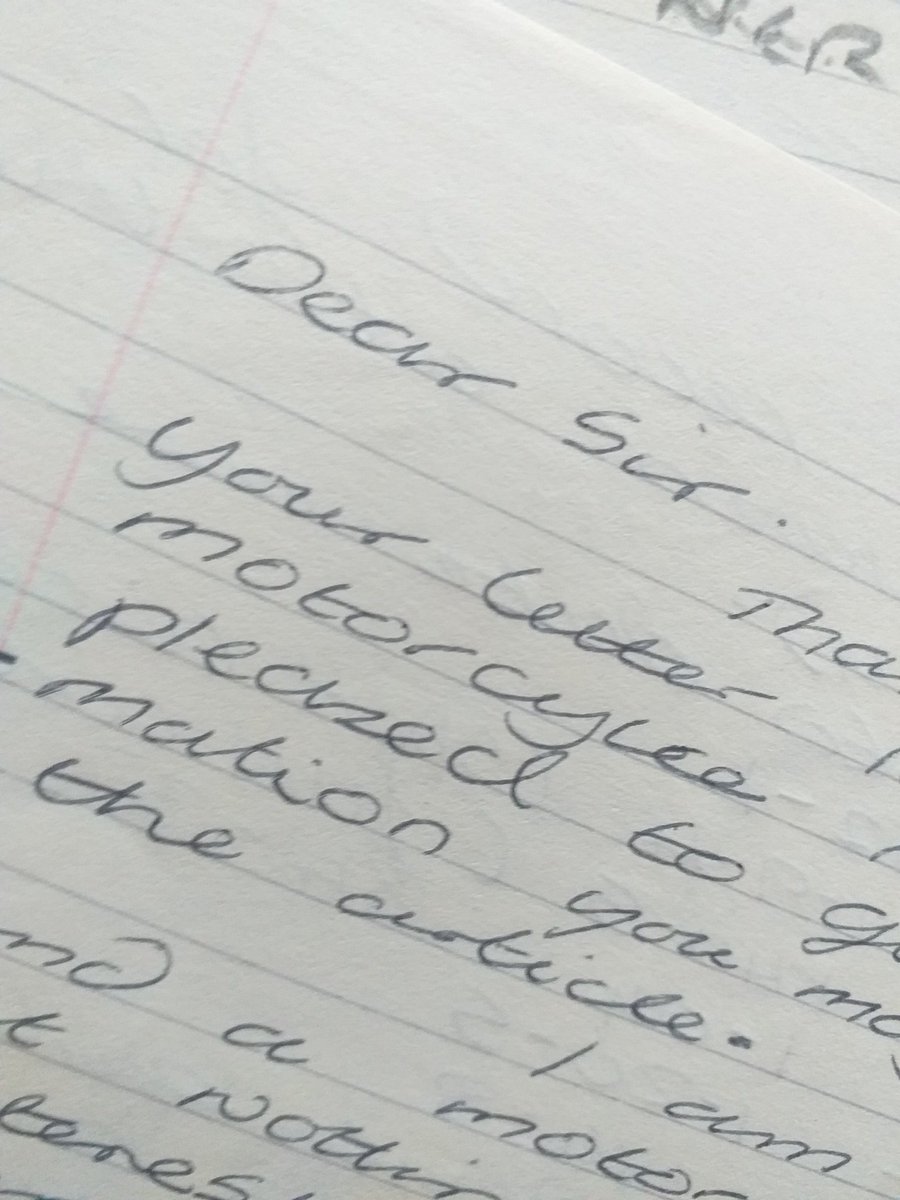 Dear Sir.
Tha
Your letter
motorcycles
pleased to g
mation you mo
the article.
I am
a motor
t nothin
teres